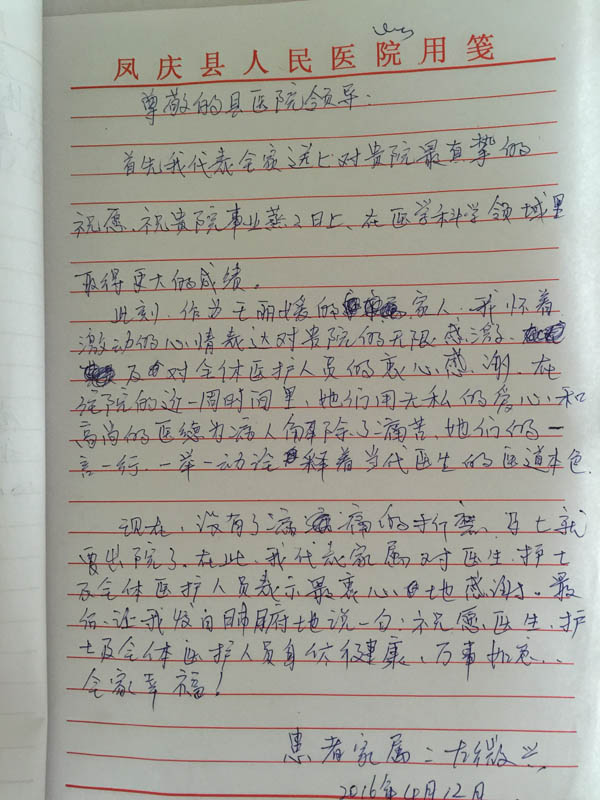 凤庆县人民医院用笺
尊敬的县医院领导：
首先我代表全家送上对贵院最真挚的
祝愿、祝贵院事业蒸蒸日上、在医学科学领域里
取得更大的成绩。
此刻，作为王丽媛的家人，我怀着
激动的心情表达对贵院的无限感激、
及对全体医护人员的衷心感谢。在
住院的近一周时间里，她们用无私的爱心和
高尚的医德为病人解除了痛苦，她们的一
言一行、一举一动诠释着当代医生的医道本色
现在，没有了病痛的折磨，马上就
要出院了。在此，我代表家属对医生、护士
及全体医护人员表示最衷心地感谢。最
后，让我发自肺腑地说一句：祝愿医生、护
士及全体医护人员身体健康，万事如意、
全家幸福！
患者家属：
2016年10月12日